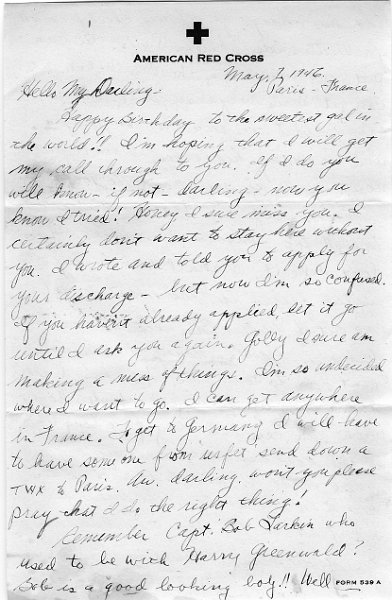 AMERICAN RED CROSS
May, 7, 1946.
Paris - France,
Hello My Darling -
Happy Birthday to the sweetest gal in
the world!! I'm hoping that I will get
my call through to you. If I do you
will know - if not - darling - now you
know I tried! Honey I sure miss you. I
certainly don't want to stay here without
you. I wrote and told you to apply for
your discharge - but now I'm so confused.
If you haven't already applied, let it go
until I ask you again. Golly I sure am
making a mess of things. I'm so undecided
where I want to go. I can get anywhere
in France. To get to Germany I will have
to have some one from usfet send down a
TWX to Paris. Aw. darling won't you please
pray that I do the right thing!
Remember Capt. Bob Larkin who
used to be with Harry Greenwald?
Bob is a good looking boy!! Well
FORM 539 A